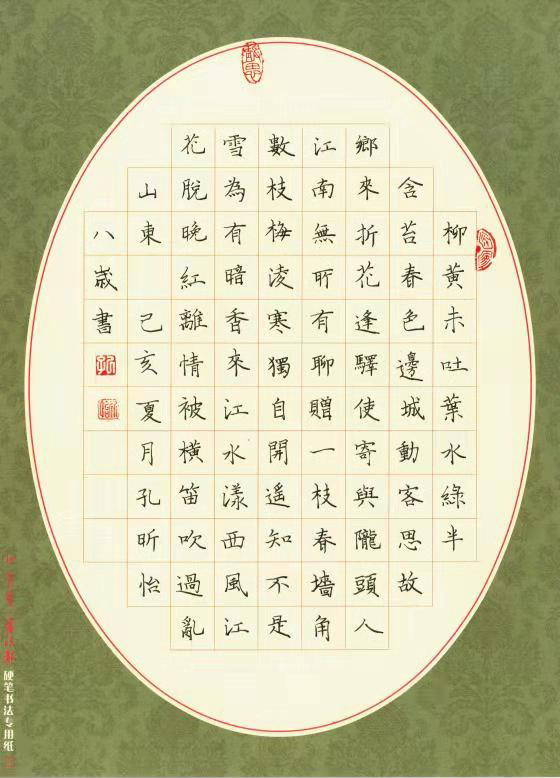 柳黄未吐葉水綠半
含苔春色邊城動客思故
鄉來折花逢驛使寄與隴頭人
江南無所有聊贈一枝春墻角
數枝梅淩寒獨自開遥知不是
雪為有暗香來江水漾西風江
花脫晚紅離情被橫笛吹過亂
山東 己亥夏月孔昕怡
八歲書
硬笔书法专用纸